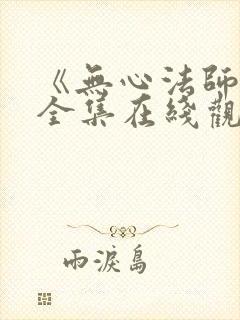 《無心法師
全集在綫觀
雨淚島